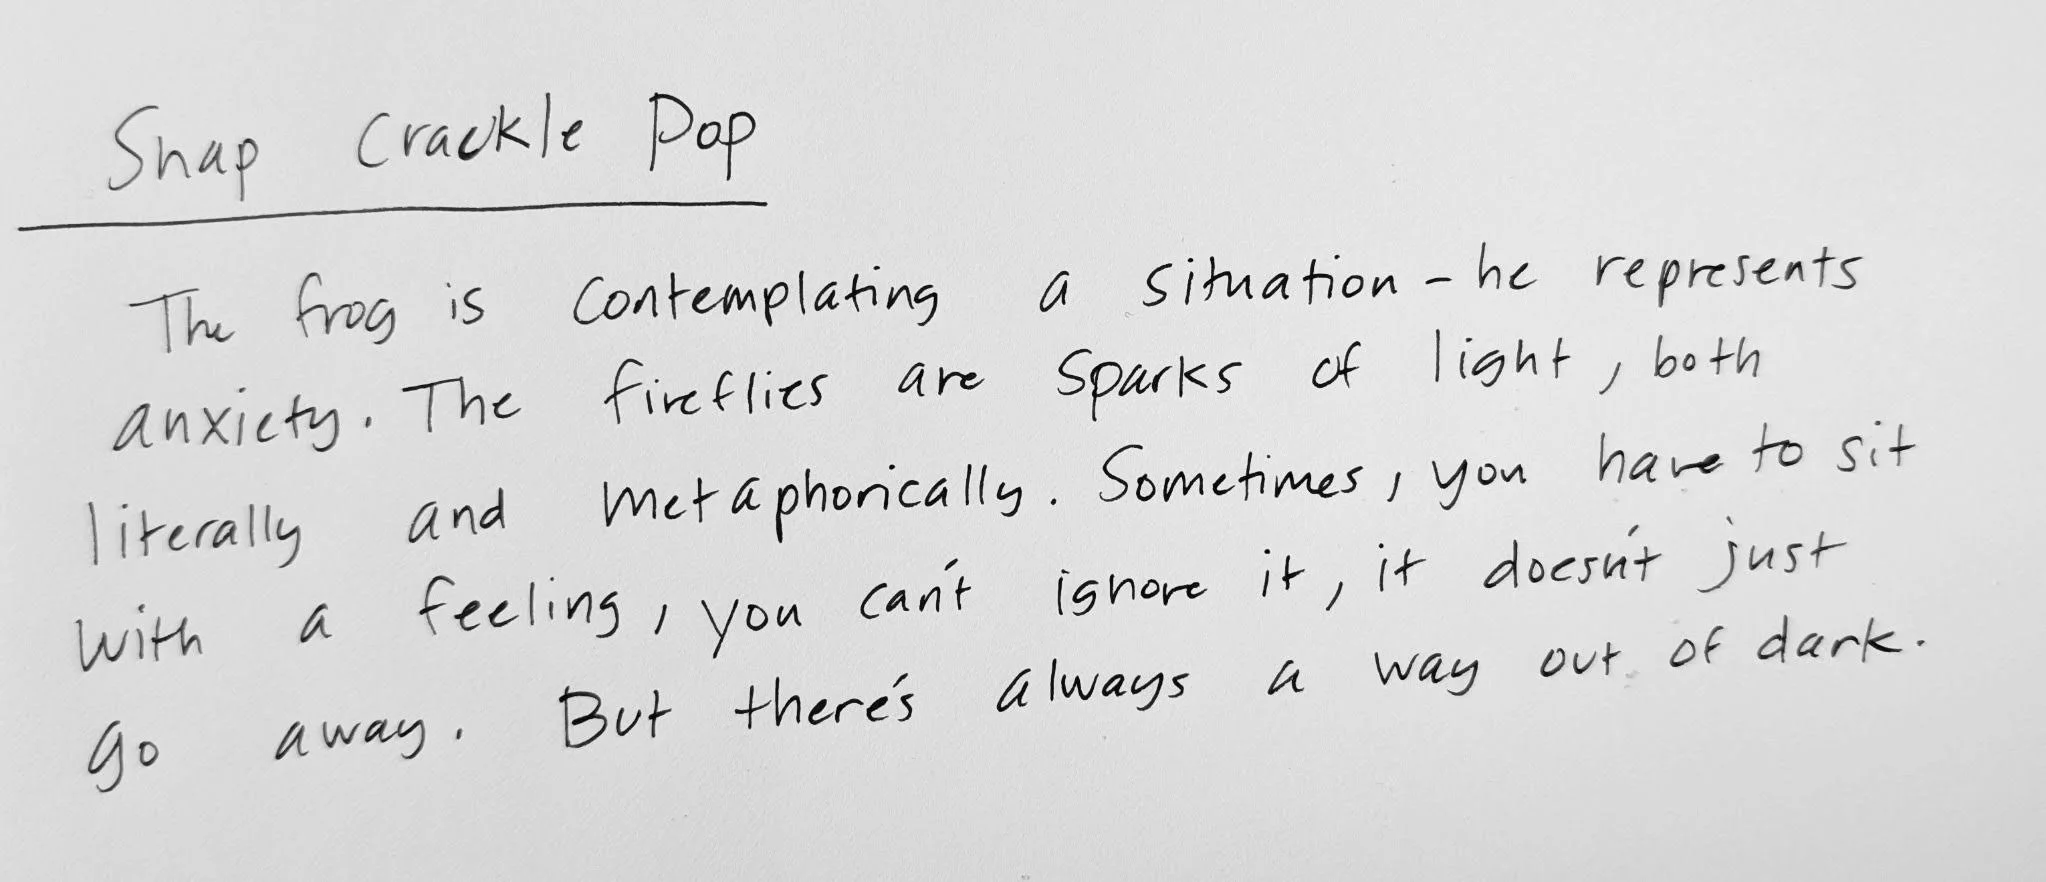 Snap Crackle Pop
The frog is contemplating a situation - he represents
anxiety. The fireflies are sparks of light, both
literally and metaphorically. Sometimes, you have to sit
with a feeling, you can't ignore it, it doesn't just
go away. But there's always a way out of dark.